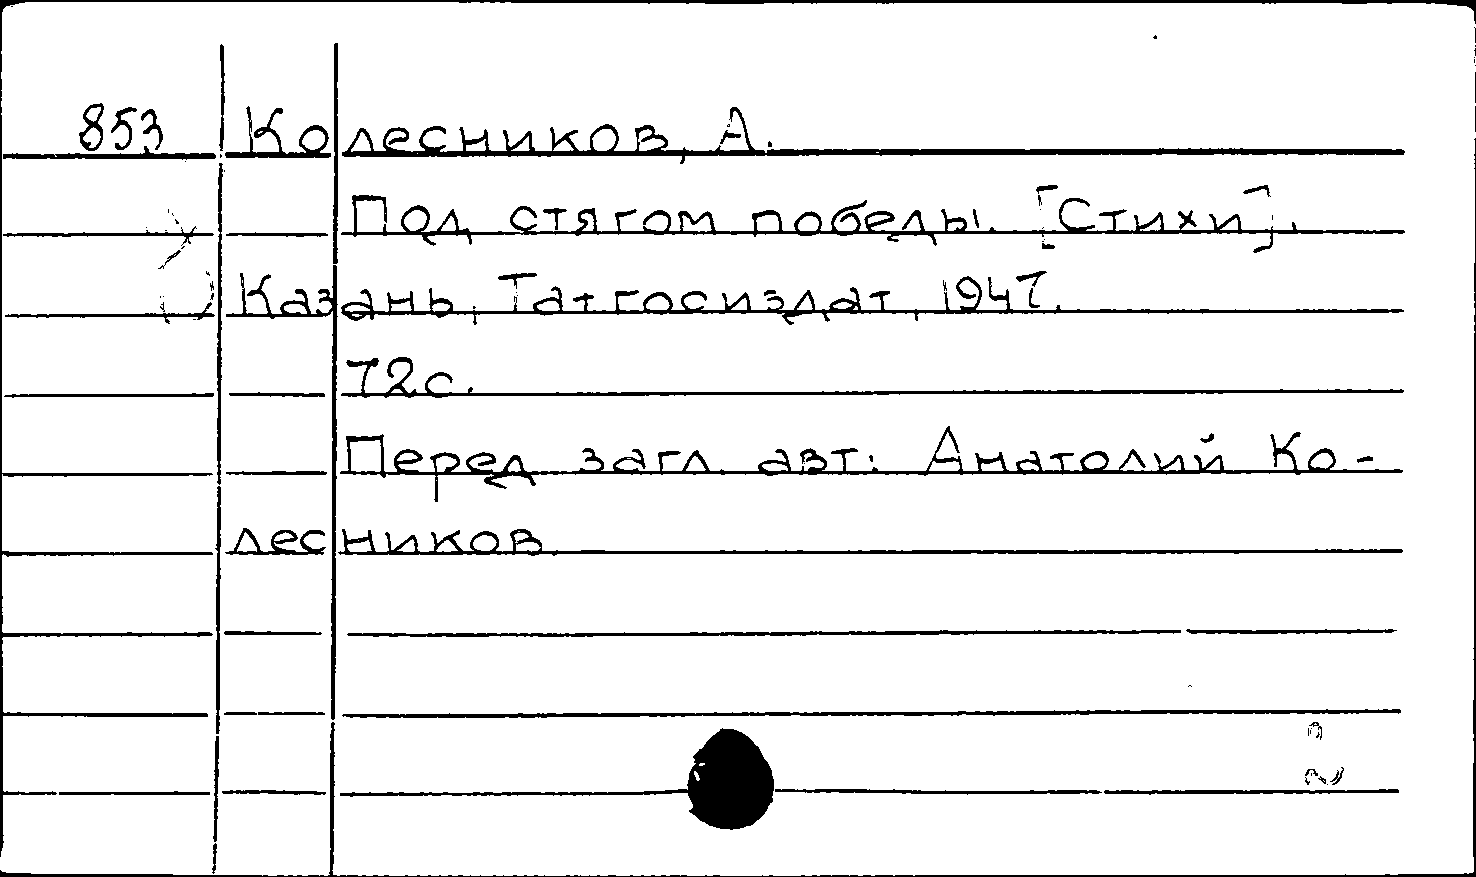 853 Колесников, А.
Под стягом победы. [Стихи].
Казань, Татгосиздат, 1947.
72с.
Перед загл. авт: Анатолий Ко-
лесников.